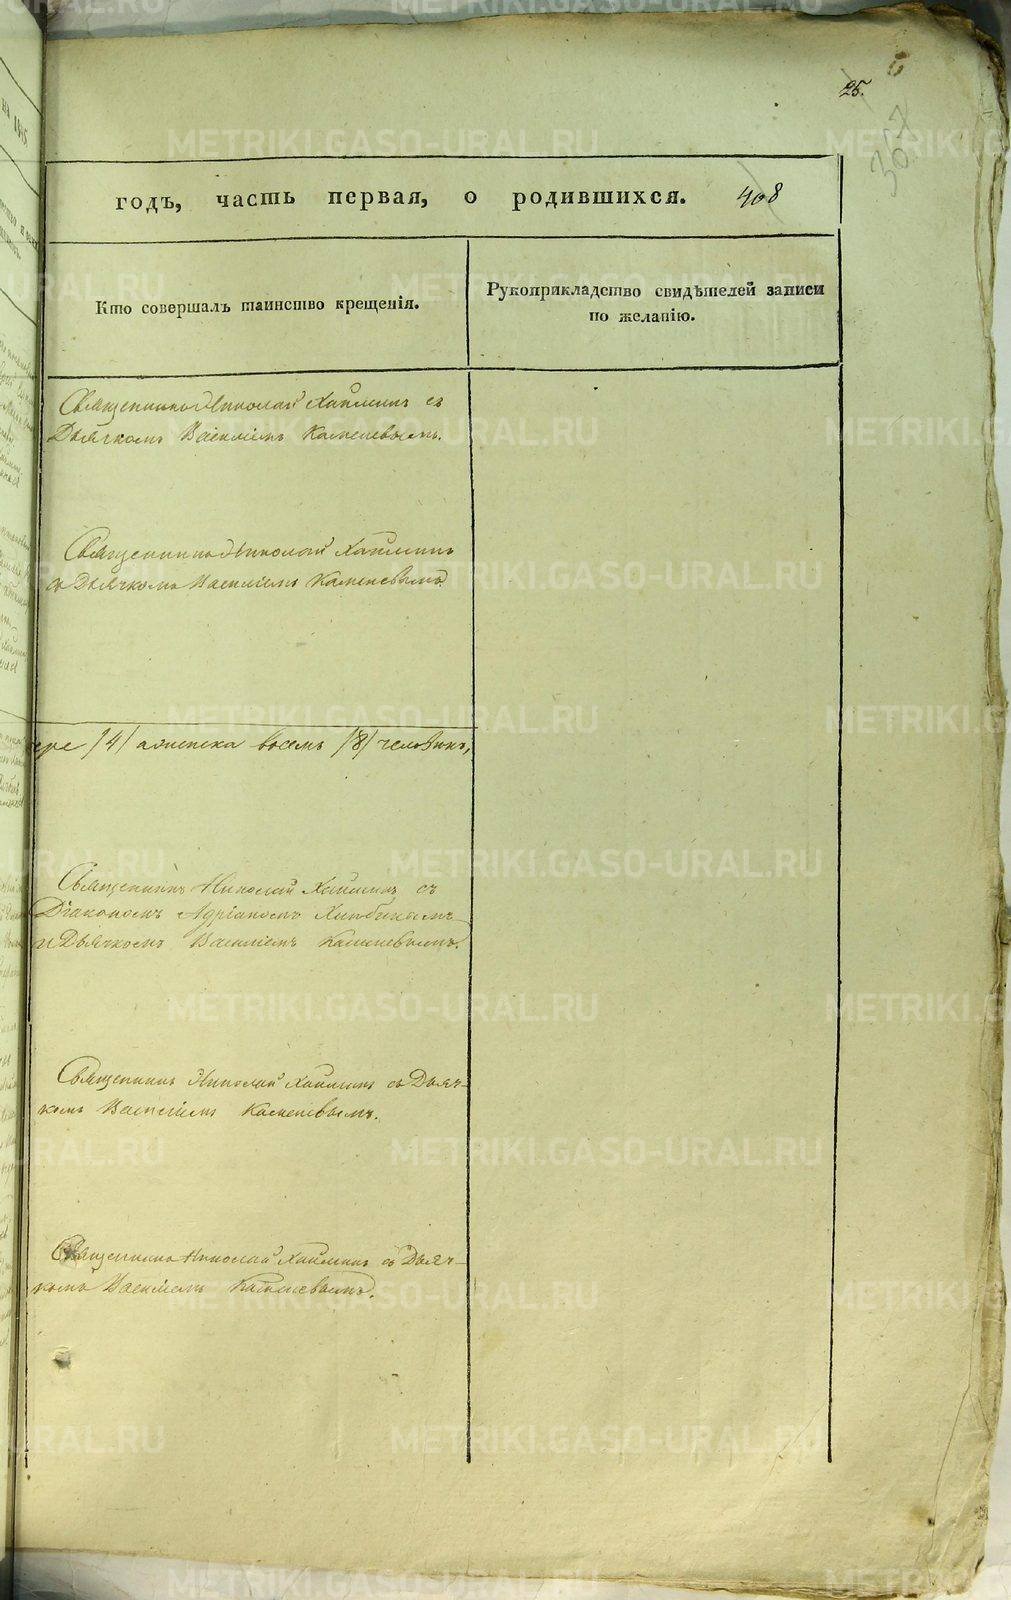 25.
годъ, часть первая, о родившихся. 408
Кто совершалъ таинство крещенія.
Рукоприкладство свидѣтелей записи
по желанію.
Священникъ Николай Хайминъ съ
Дьячкомъ Василіемъ Каменевымъ.
Священникъ Николай Хайминъ
съ Дьячкомъ Василіемъ Каменевымъ
/4/ а женска восемь /8/ человѣкъ,
Священникъ Николай Хайминъ съ
Діакономъ Адріаномъ
и Дьячкомъ Василіемъ Каменевымъ.
Священникъ Николай Хайминъ съ Дьяч-
комъ Василіемъ Каменевымъ.
Священникъ Николай Хайминъ съ Дьяч-
комъ Василіемъ Каменевымъ.
METRIKI.GASO-URAL.RU